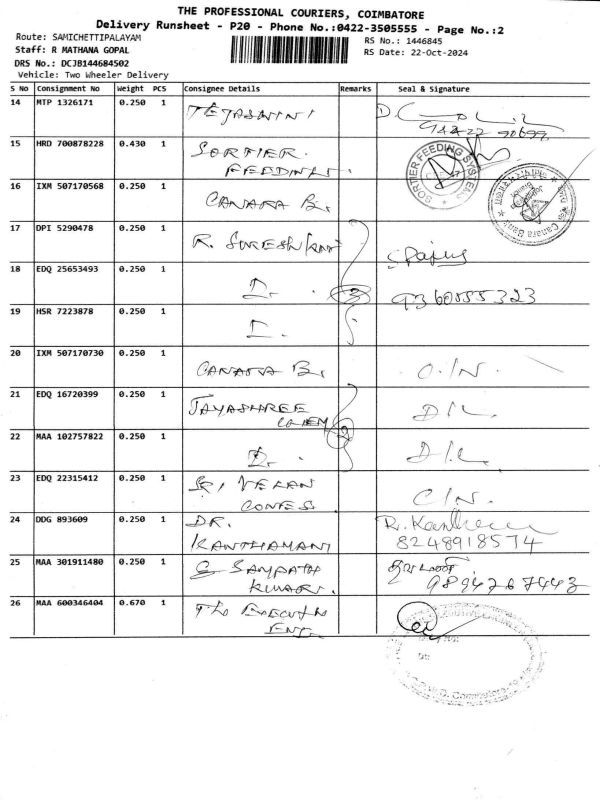 THE PROFESSIONAL COURIERS, COIMBATORE
Delivery Runsheet - P20 - Phone No.:0422-3505555 - Page No.:2
Route: SAMICHETTIPALAYAM
RS No.: 1446845
Staff: R MATHANA GOPAL
RS Date: 22-Oct-2024
DRS No.: DCJB144684502
Vehicle: Two Wheeler Delivery
S No Consignment No Weight PCS Consignee Details Remarks Seal & Signature
14 MTP 1326171 0.250 1 TEJASWINI
15 HRD 700878228 0.430 1 SORTIER
FEEDING SORTIER FEEDING SYSTEMS
16 IXM 507170568 0.250 1 CANARA B. Canara Bank
17 DPI 5290478 0.250 1 R. SURESH
18 EDQ 25653493 0.250 1 D. 2 9360855323
19 HSR 7223878 0.250 1 D.
20 IXM 507170730 0.250 1 CANARA B. C.IN.
21 EDQ 16720399 0.250 1 JAYASHREE D/L.
CHEM 2
22 MAA 102757822 0.250 1 D. D/L.
23 EDQ 22315412 0.250 1 SRI VELAN C/N.
CONFES
24 DDG 893609 0.250 1 DR. R. Kantham
KANTHAMANI 8248918574
25 MAA 301911480 0.250 1 G SAMPATH
KUMAR. 9894767443
26 MAA 600346404 0.670 1 THE EXECUTIVE
ENG.
Coimbatore